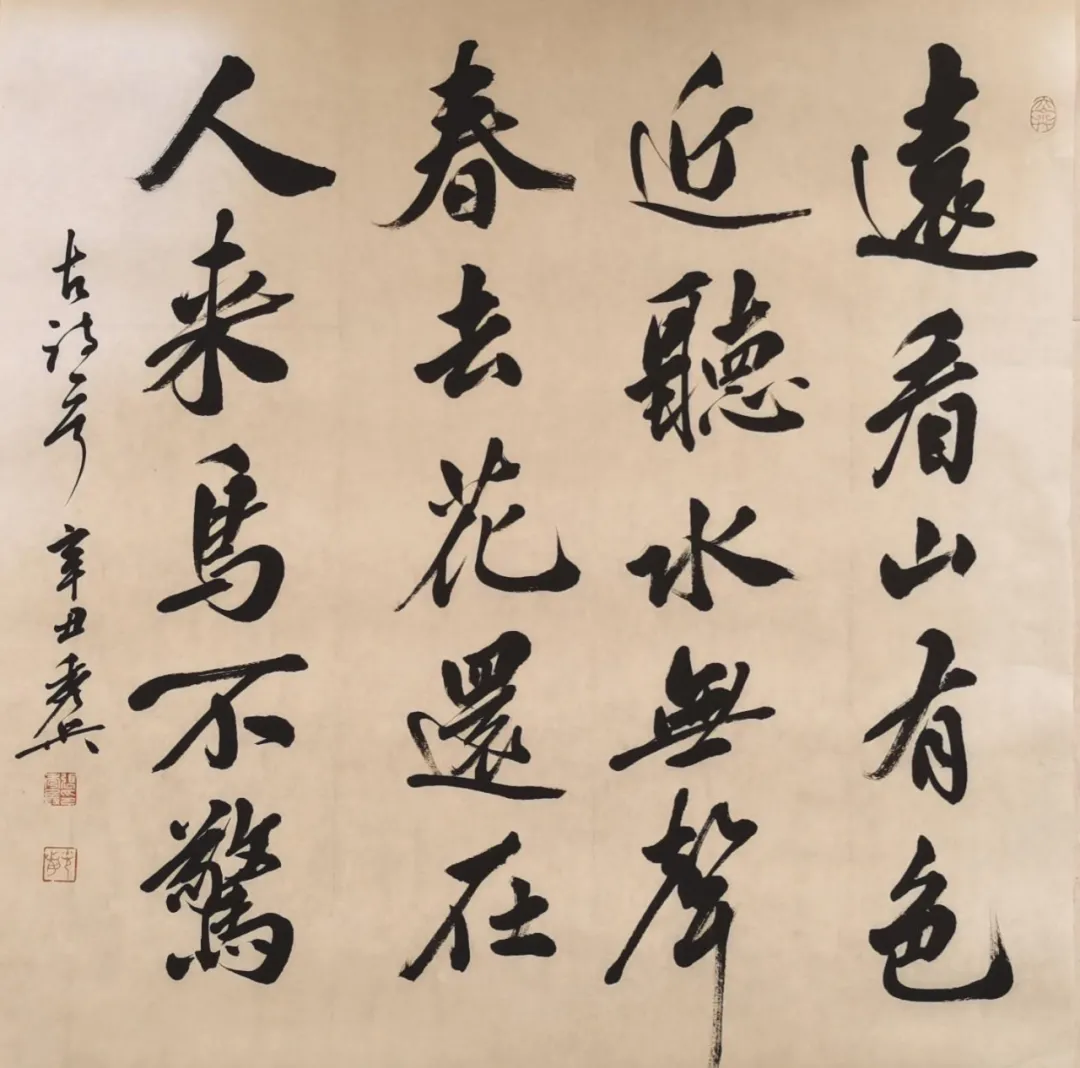 遠看山有色
近聽水無聲
春去花還在
人来鳥不驚
古詩一首 辛丑